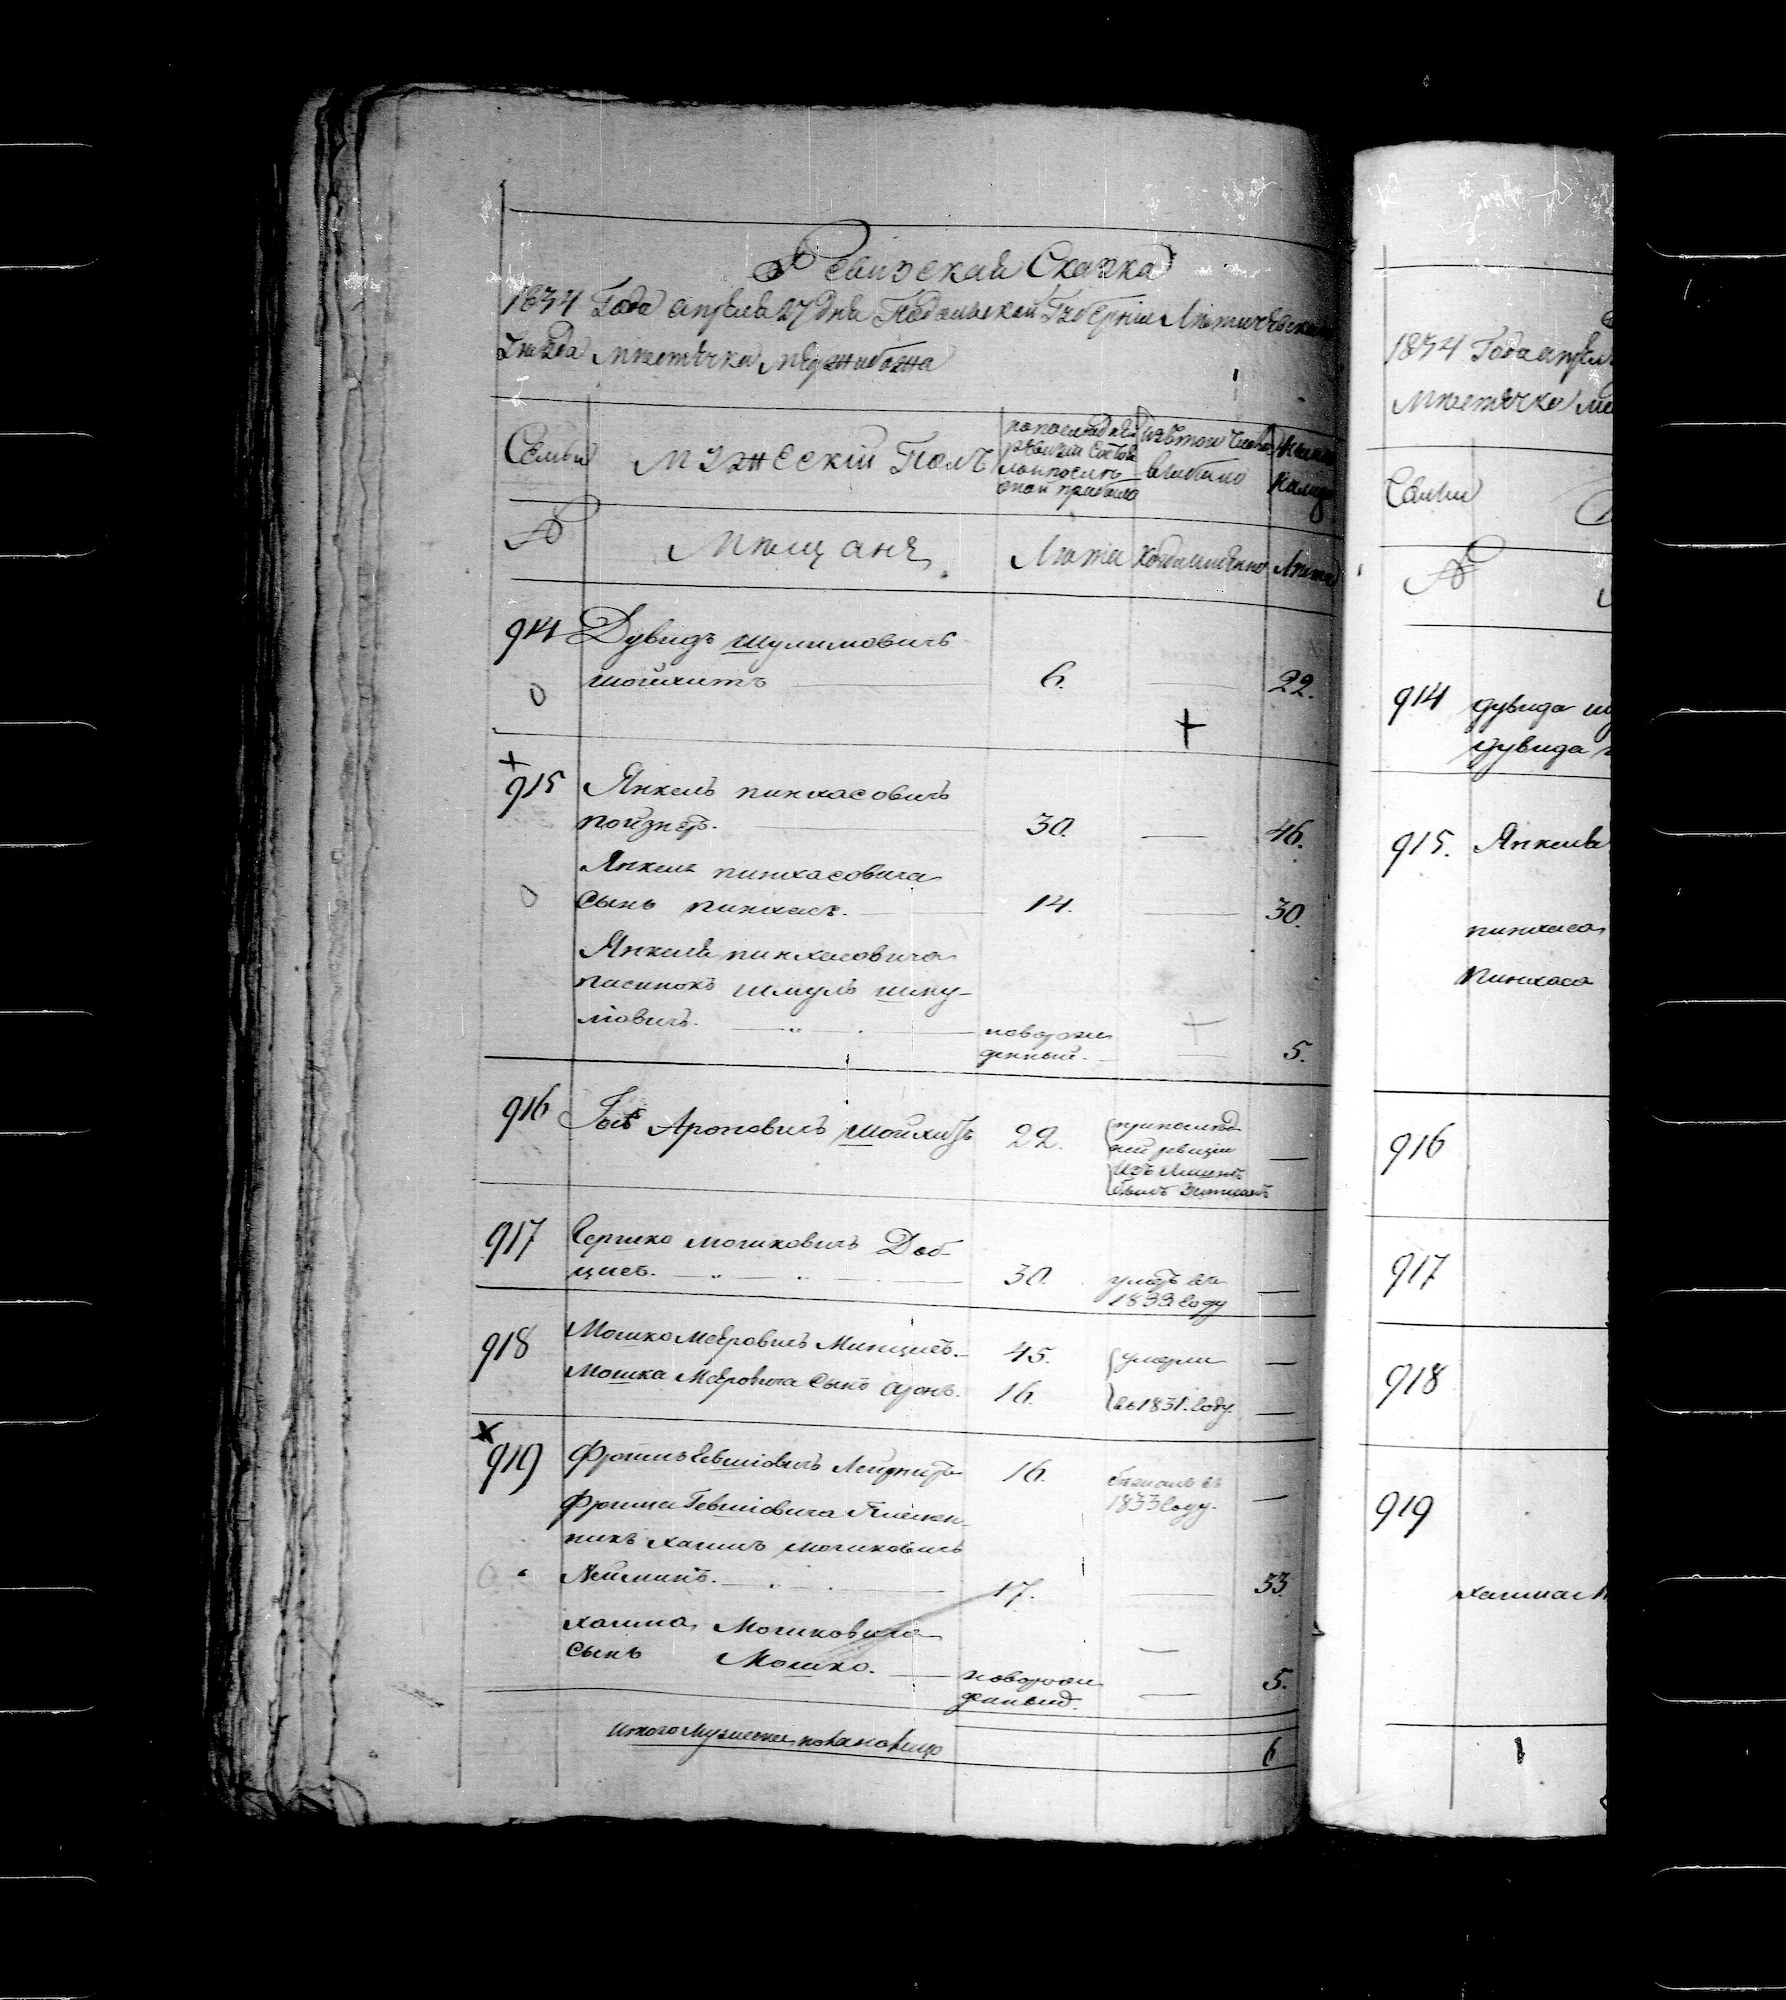 Ревизская Сказка
1834 Года апреля 27 дня Подольской Губернии Литичевскаго
Уезда Мѣстечка Меджибожа
Семьи
Мужескій Полъ
по последней
ревизіи состоя
ло и после
оной прибыло
изъ того числа
выбыло
Ныне
на лицо
№
Мѣщане
Лета
Когда имянно
Лета
914
Дувидъ шулимовичъ
шойхитъ
6.
22.
915
Янкель пинхасовичъ
пойзнеръ.
30.
46.
Янкеля пинхасовича
Сынъ пинхасъ.
14.
30.
Янкеля пинхасовича
пасинокъ шмуль шму-
ловичъ.
новорож
денный.
5.
916
Ароновичъ шойхитъ
22.
при послед
ней ревизіи
изъ
былъ
917
Гершко мошковичъ Доб-
30.
умеръ въ
1833 году
918
Мошко Мееровичъ
45.
умерли
Мошка Мееровича Сынъ аронъ.
16.
въ 1831. году.
919
Фроимъ Гевшіовичъ
16.
бежалъ въ
1833 году.
Фроима Гевшіовича Племен-
никъ хаимъ мошковичъ
17.
33
хаима Мошковича
сынъ Мошко.
новорож
денный.
5.
Итого Мужеска пола на лицо
6
1834 Года апреля
Мѣстечка Ме
Семьи
№
914
дувида шу
дувида
915.
Янкеля
пинхаса
Пинхаса
916
917
918
919
хаима м